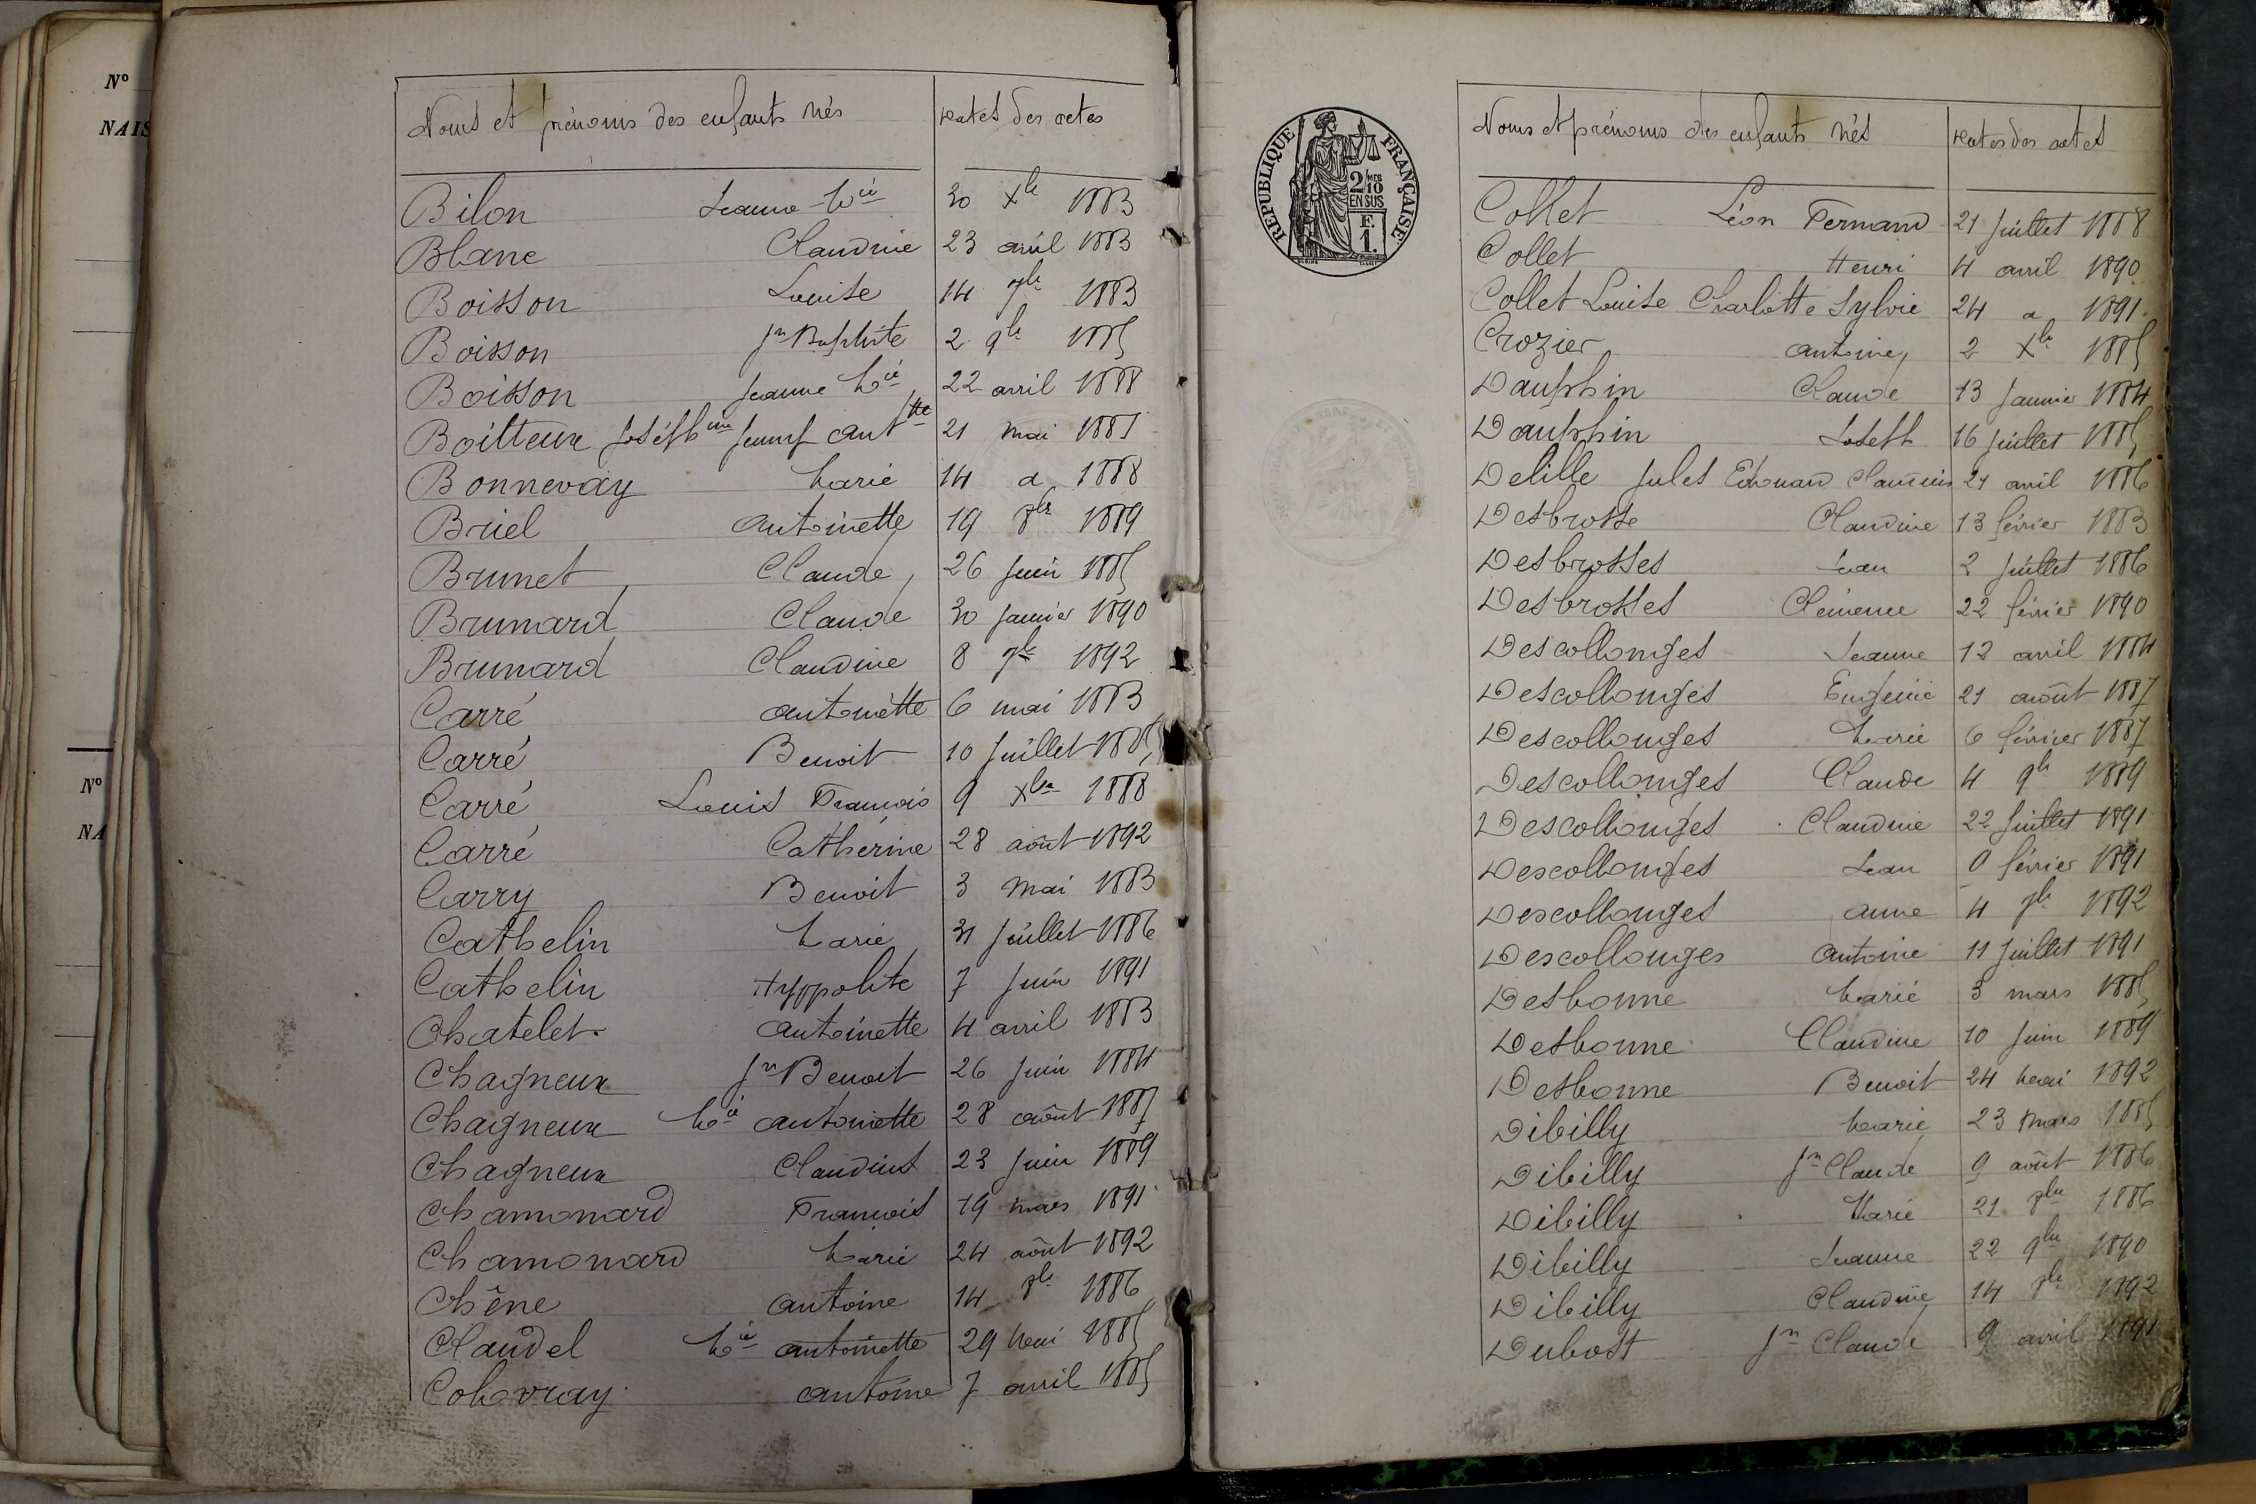 N°
NAIS
N°
NA
Noms et prénoms des enfants nés Dates des actes
Bilon Jeanne Mie 30 Xbre 1883
Blanc Claudine 23 avril 1883
Boisson Louise 14 7bre 1883
Boisson Jn Baptiste 2 9bre 1885
Boisson Jeanne Mie 22 avril 1888
Boitteux Joséphine Jeanne Anttte 21 mai 1885
Bonnevay Marie 14 d 1888
Briel Antoinette 19 8bre 1889
Brunet Claude 26 Juin 1885
Brunard Claude 30 Janvier 1890
Brunard Claudine 8 7bre 1892
Carré Antoinette 6 mai 1883
Carré Benoit 10 Juillet 1885
Carré Louis François 9 Xbre 1888
Carré Cathérine 28 août 1892
Carry Benoit 3 Mai 1883
Cathelin Marie 31 Juillet 1886
Cathelin Hyppolite 7 Juin 1891
Chatelet Antoinette 4 avril 1883
Chagneux Jn Benoit 26 Juin 1884
Chagneux Mie Antoinette 28 août 1887
Chagneux Claudius 23 Juin 1889
Chamonard François 19 mars 1891
Chamonard Marie 24 août 1892
Chêne Antoine 14 8bre 1886
Claudel Mie Antoinette 29 Mai 1885
Cohavray Antoine 7 avril 1885
REPUBLIQUE FRANÇAISE
2/10 EN SUS
F. 1.
Noms et prénoms des enfants nés Dates des actes
Collet Léon Fernand 21 Juillet 1888
Collet Henri 4 avril 1890
Collet Louise Charlotte Sylvie 24 d 1891
Crozier Antoine 2 Xbre 1885
Dauphin Claude 13 Janvier 1884
Dauphin Joseph 16 Juillet 1885
Delille Jules Edouard Claudius 21 avril 1886
Desbrosse Claudine 13 février 1883
Desbrosses Jean 2 Juillet 1886
Desbrosses Clémence 22 février 1890
Descollonges Jeanne 12 avril 1884
Descollonges Eugenie 21 août 1887
Descollonges Marie 6 février 1887
Descollonges Claude 4 9bre 1889
Descollonges Claudine 22 Juillet 1891
Descollonges Jean février 1891
Descollonges Anne 4 7bre 1892
Descollonges Antoine 11 Juillet 1891
Desbonne Marie 3 mars 1885
Desbonne Claudine 10 Juin 1889
Desbonne Benoit 24 Mai 1892
Dibilly Marie 23 Mars 1885
Dibilly Jn Claude 9 août 1886
Dibilly Marie 21 8bre 1886
Dibilly Jeanne 22 9bre 1890
Dibilly Claudine 14 8bre 1892
Dubost Jn Claude 9 avril 1891